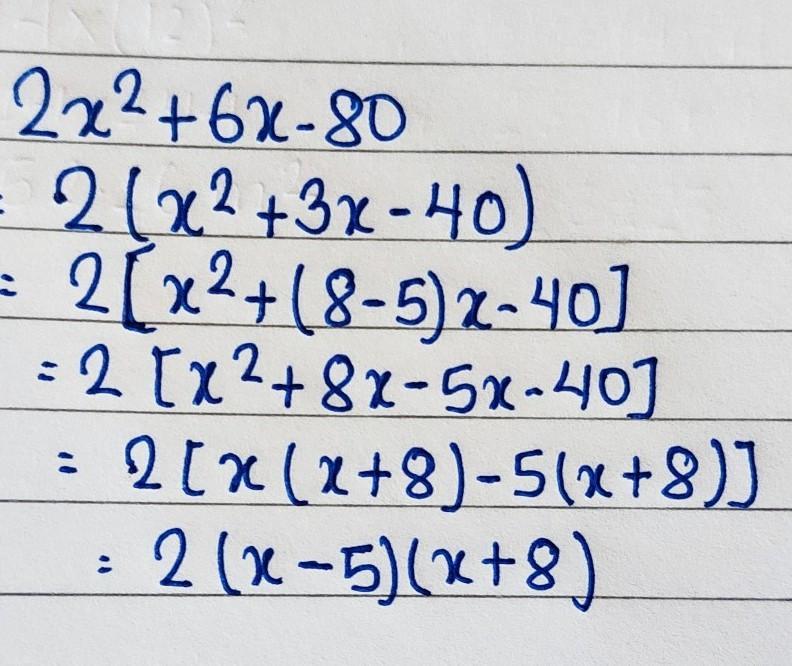 2x² + 6x - 80
= 2(x² + 3x - 40)
= 2[x² + (8 - 5)x - 40]
= 2[x² + 8x - 5x - 40]
= 2[x(x + 8) - 5(x + 8)]
= 2(x - 5)(x + 8)